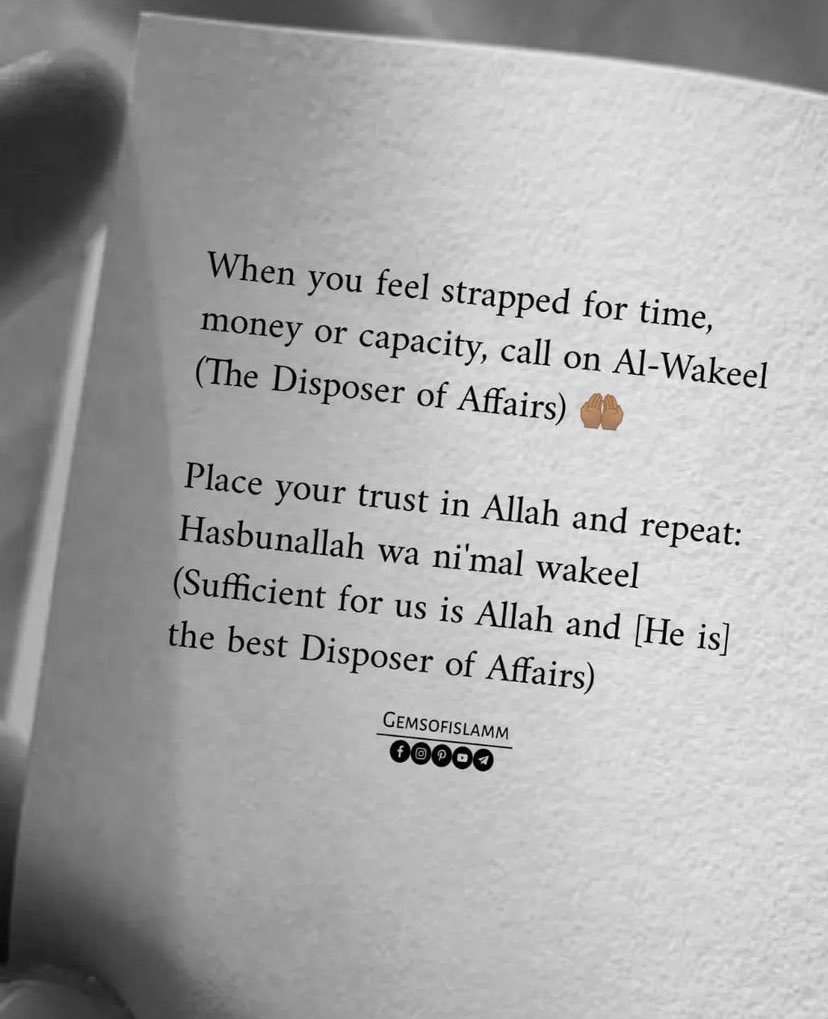 When you feel strapped for time,
money or capacity, call on Al-Wakeel
(The Disposer of Affairs) 🤲🏽
Place your trust in Allah and repeat:
Hasbunallah wa ni'mal wakeel
(Sufficient for us is Allah and [He is]
the best Disposer of Affairs)
GEMSOFISLAMM